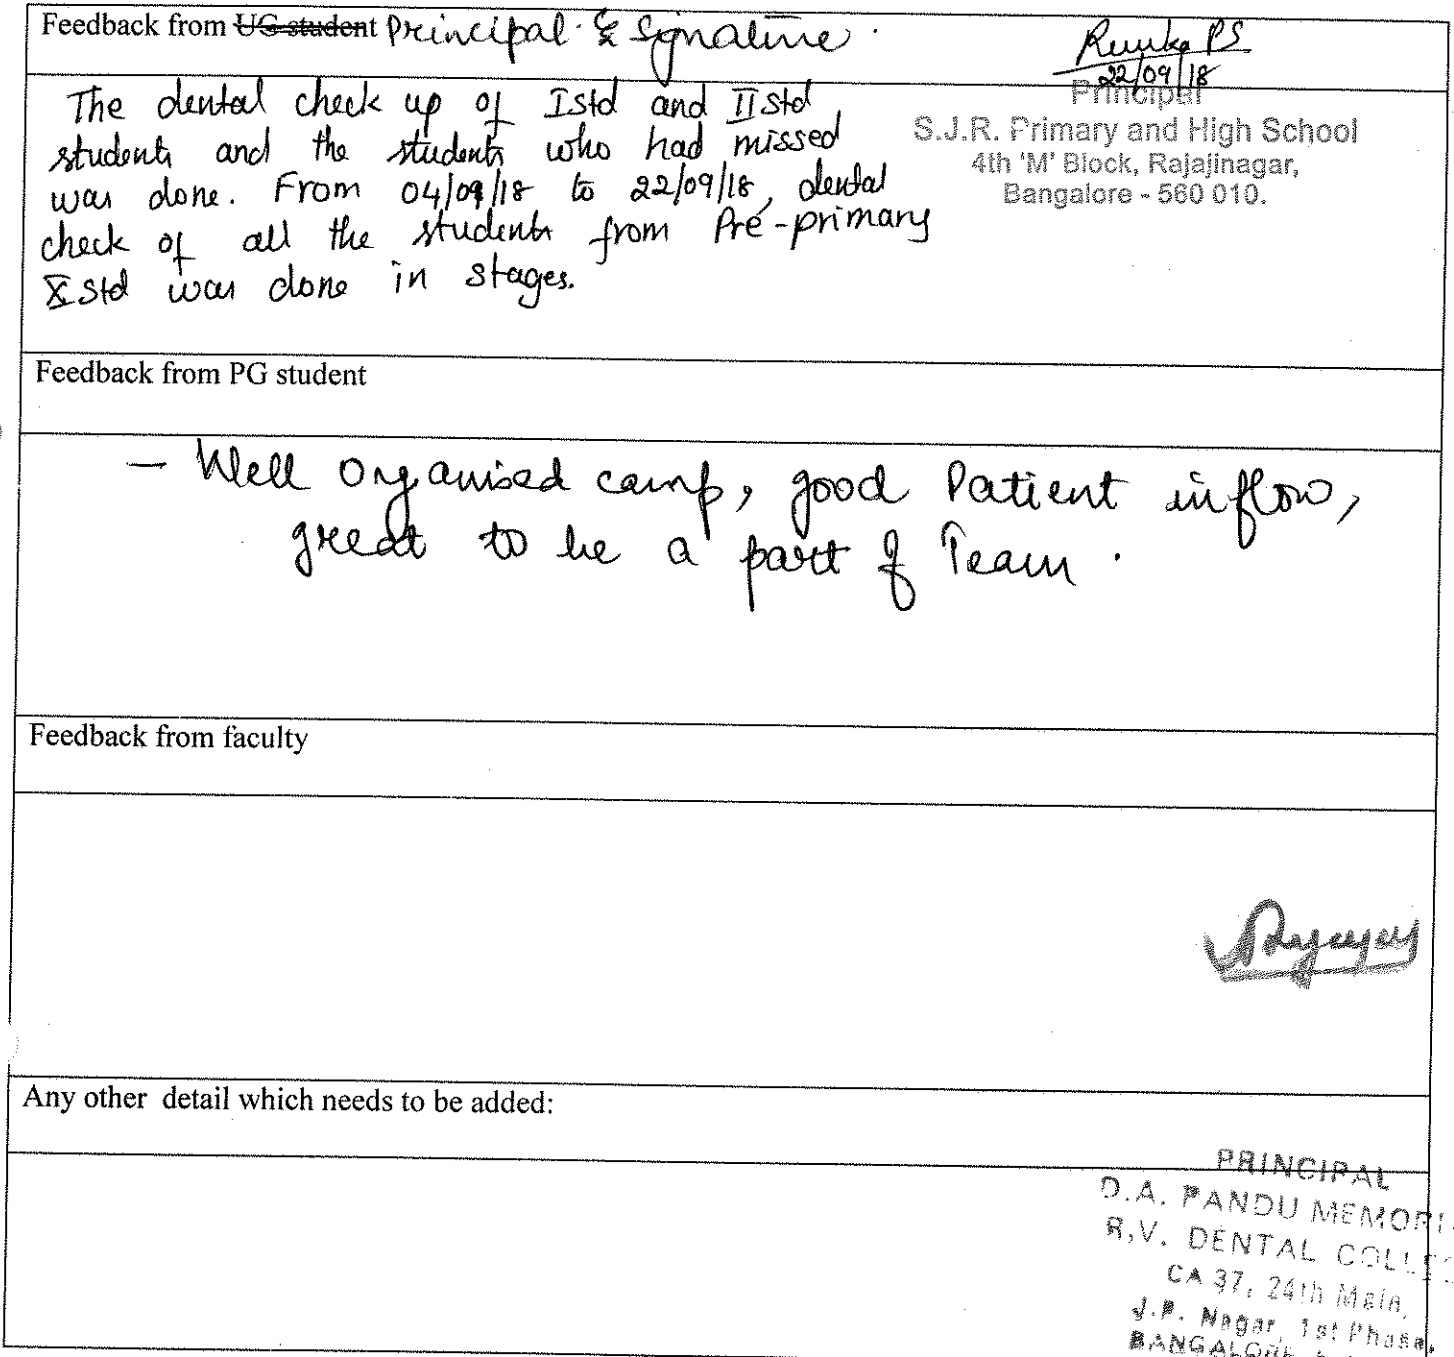 Feedback from UG student Principal & Signature
Renuka PS
22/09/18
Principal
S.J.R. Primary and High School
4th 'M' Block, Rajajinagar,
Bangalore - 560 010.
The dental check up of I std and II std
students and the students who had missed
was done. From 04/09/18 to 22/09/18, dental
check of all the students from Pre-primary
X std was done in stages.
Feedback from PG student
- Well Organised camp, good Patient inflow,
great to be a part of Team.
Feedback from faculty
Any other detail which needs to be added:
PRINCIPAL
D.A. PANDU MEMORI
R.V. DENTAL COLLE
CA 37, 24th Main,
J.P. Nagar, 1st Phase,
BANGALORE